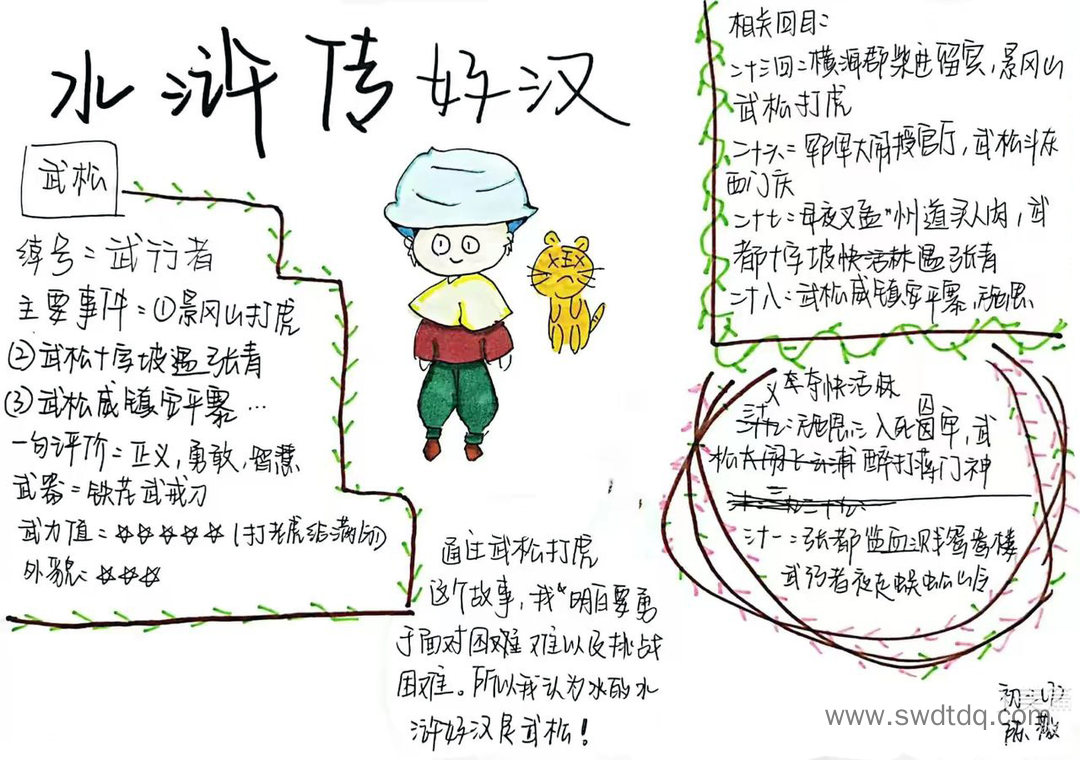 水浒传好汉
武松
绰号：武行者
主要事件：①景冈山打虎
②武松十字坡遇张青
③武松威镇安平寨…
一句评价：正义，勇敢，智慧
武器：铁花武戒刀
武力值：☆☆☆☆☆（打老虎给满分）
外貌：☆☆☆
通过武松打虎
这个故事，我明白要勇
于面对困难 难以及挑战
困难。所以我认为水的水
浒好汉是武松！
相关回目：
二十三回：横海郡柴进留宾，景冈山
武松打虎
二十六：郓哥大闹授官厅，武松斗杀
西门庆
二十七：母夜叉孟州道卖人肉，武
都十字坡快活林遇张青
二十八：武松威镇安平寨，施恩
义夺快活林
三十九：施恩三入死囚牢，武
松大闹飞云浦 醉打蒋门神
三十一：张都监血溅鸳鸯楼
武行者夜走蜈蚣岭
www.swdtdq.com